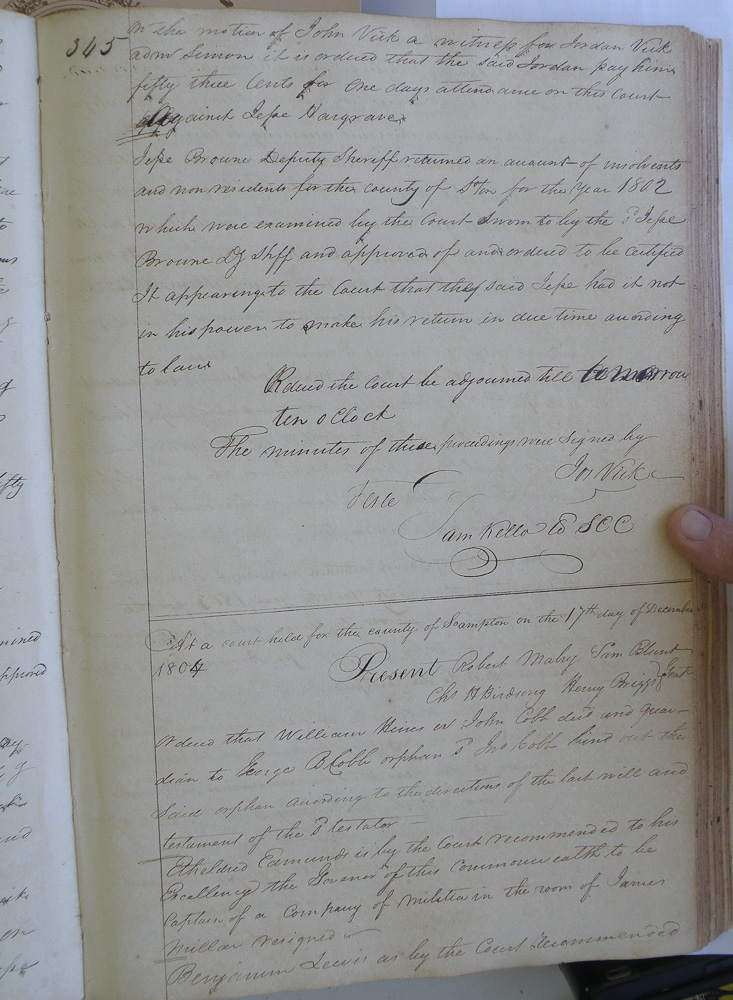 345
On the motion of John Vick a witness for Jordan Vick
admr Simon it is ordered that the said Jordan pay him
fifty three Cents for one days attendance on this Court
against Jesse Hargrave
Jesse Browne Deputy Sheriff returned an account of insolvents
and non residents for the county of Ston for the Year 1802
which were examined by the Court Sworn to by the Sd Jesse
Browne Dy Shff and approved of and ordered to be certified
It appearing to the Court that the said Jesse had it not
in his power to make his return in due time according
to law
Ordered the Court be adjourned till tomorrow
ten oClock
The minutes of these proceedings were signed by
Jos Vick
Teste
Sam Kello SCC
At a court held for the county of Soampton on the 17th day of December
1804
Present Robert Mabry Sam Blunt
Chs H Birdsong Henry Briggs Gent
Ordered that William Hines ex John Cobb decd and guar-
dian to George B Cobb orphan Sd Jno Cobb bind out the
said orphan according to the directions of the last will and
testament of the Sd testator
Etheldred Edmunds is by the Court recommended to his
Excellency the Govenor of this Commonwealth to be
Captain of a Company of militia in the room of James
Millar resigned
Benjamin Lewis as by the Court Recommended